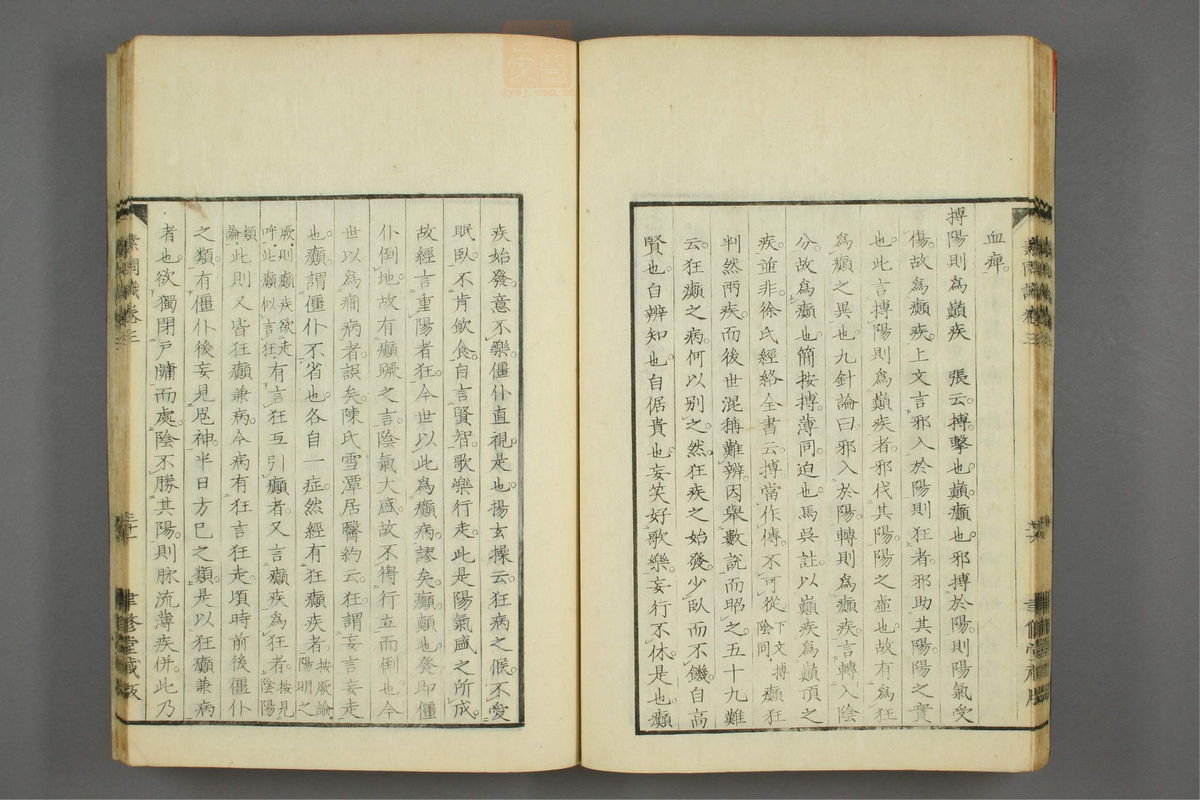 血痺
搏陽則爲巔疾 張云搏擊也巔癲也邪搏於陽則陽氣受
傷故爲癲疾上文言邪入於陽則狂者邪助其陽陽之實
也此言搏陽則爲巔疾者邪伐其陽陽之虛也故有爲狂
爲癲之異也九針論曰邪入於陽轉則爲癲疾言轉入陰
分故爲癲也簡按搏薄同迫也馬吳註以巔疾爲巔頂之
疾並非徐氏經絡全書云搏當作傳不可從下文搏陰同癲狂
判然兩疾而後世混稱難辨因舉數說而昭之五十九難
云狂癲之病何以別之然狂疾之始發少臥而不饑自高
賢也自辨知也自倨貴也妄笑好歌樂妄行不休是也癲
疾始發意不樂僵仆直視是也揚玄操云狂病之候不愛
眠臥不肯飲食自言賢智歌樂行走此是陽氣盛之所成
故經言重陽者狂今世以此爲癲病謬矣癲顛也發卽僵
仆倒地故有癲蹶之言陰氣大盛故不得行立而倒也今
世以爲癇病者誤矣陳氏雪潭居醫約云狂謂妄言妄走
也癲謂僵仆不省也各自一症然經有狂癲疾者按厥論陽明之
厥則癲疾欲走呼此癲似言狂有言狂互引癲者又言癲疾爲狂者按見陰陽
類論此則又皆狂癲兼病今病有狂言狂走頃時前後僵仆
之類有僵仆後妄見鬼神半日方已之類是以狂癲兼病
者也欲獨閉戶牖而處陰不勝其陽則脉流薄疾併此乃
素問識卷三
聿修堂藏版